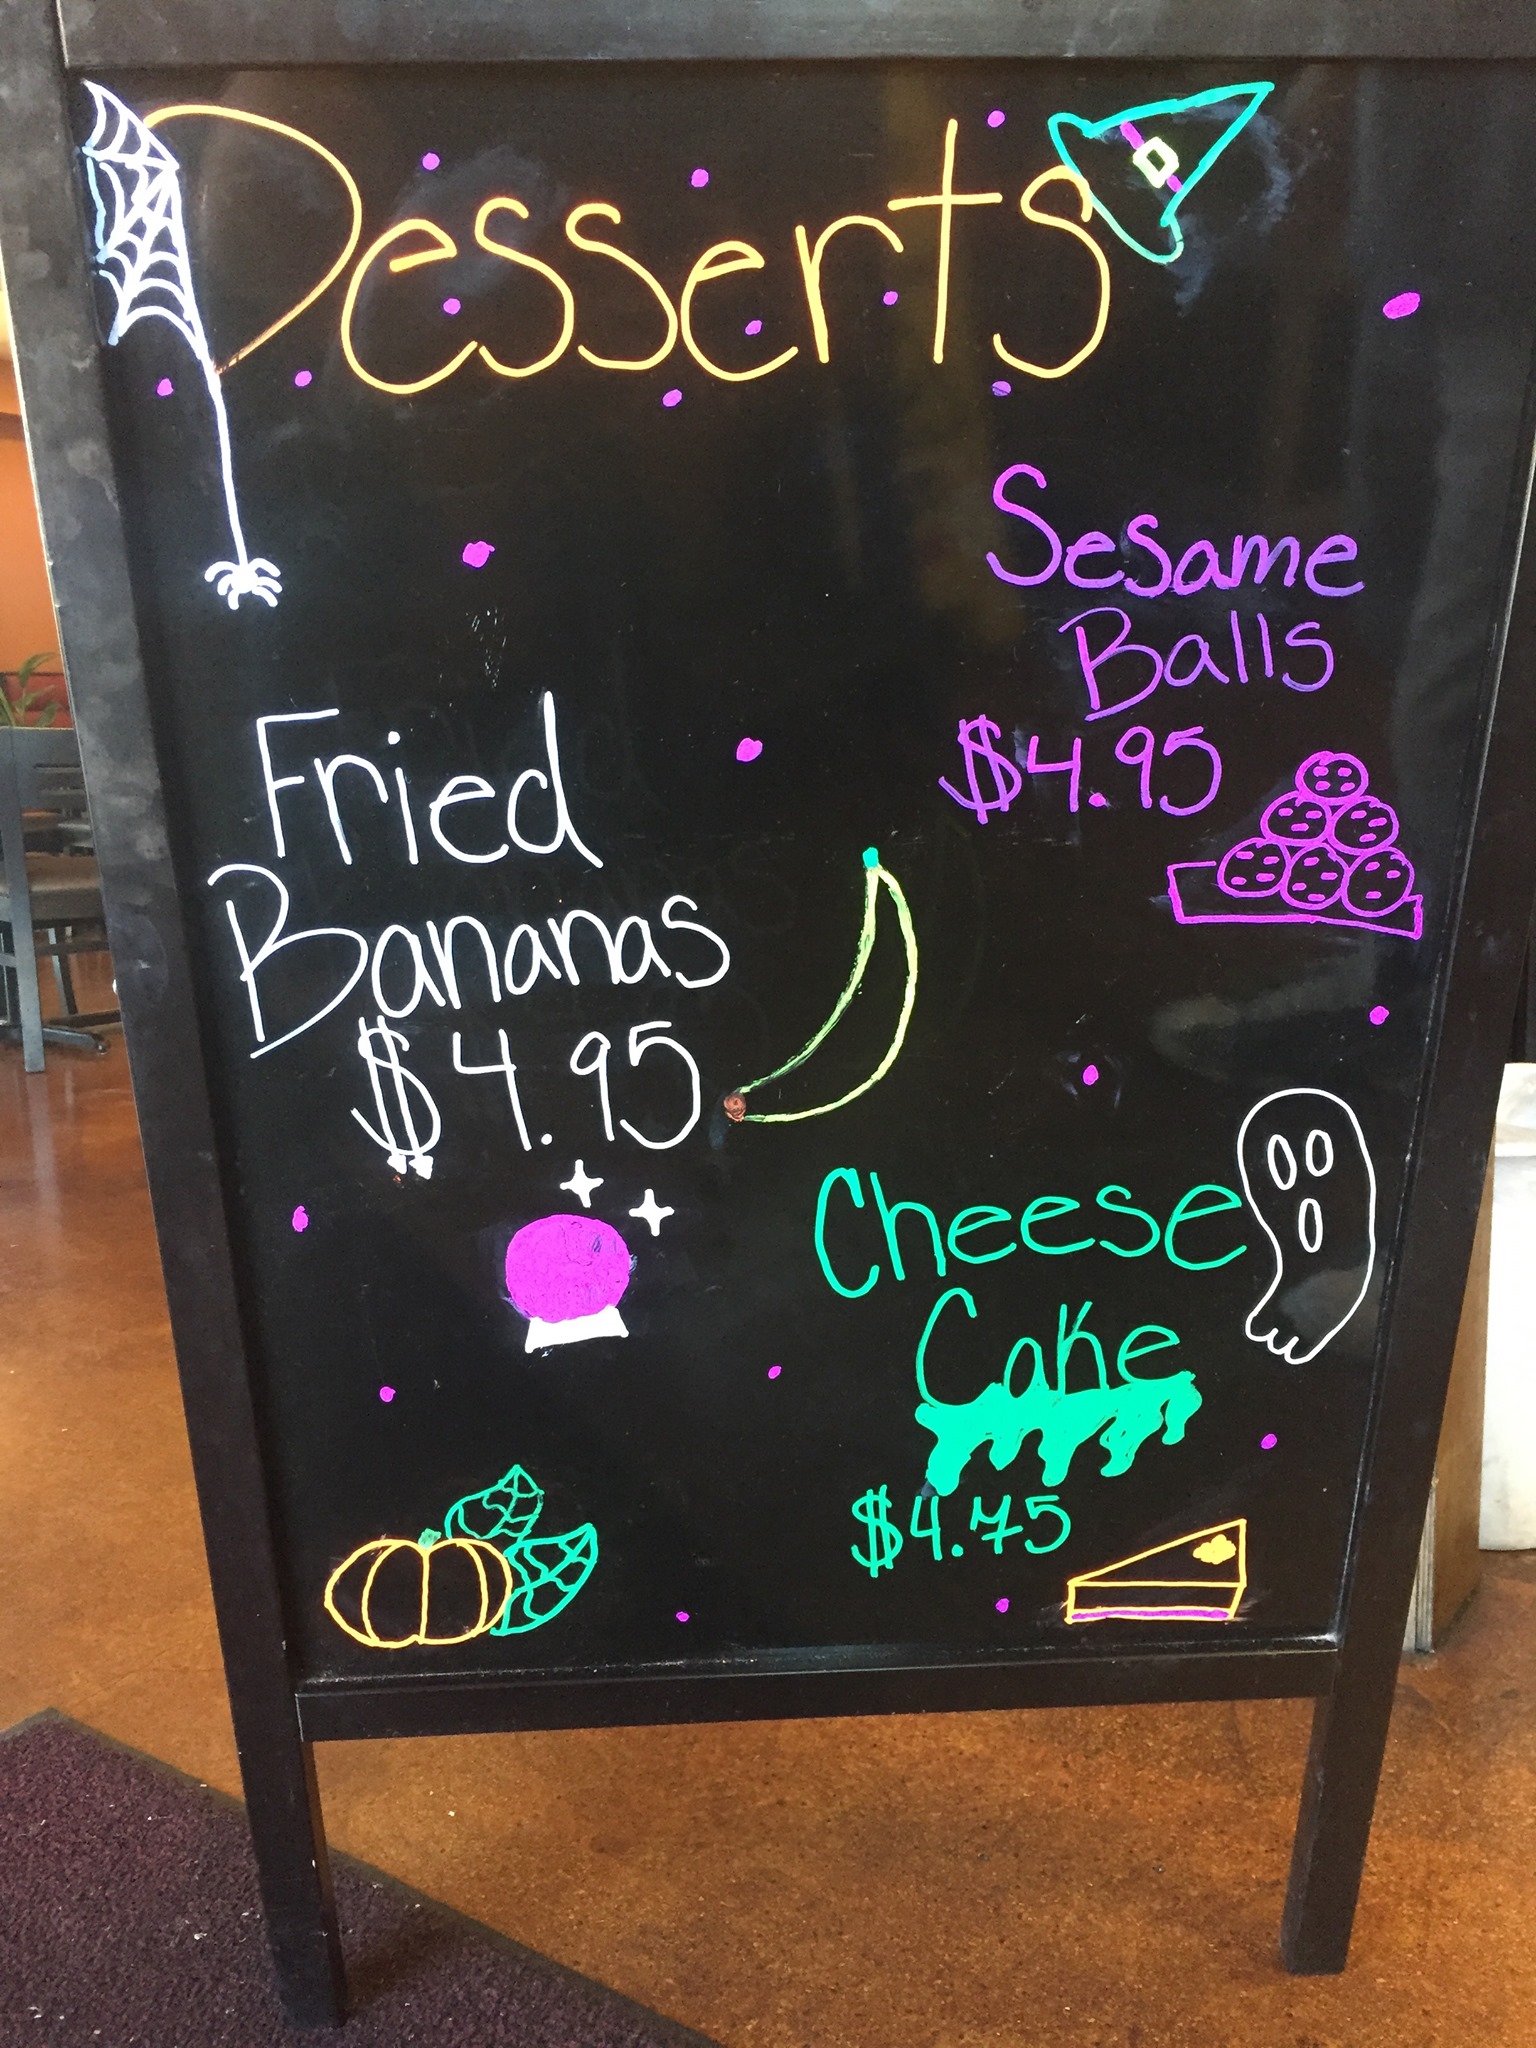 Desserts
Sesame
Balls
$4.95
Fried
Bananas
$4.95
Cheese
Cake
$4.75